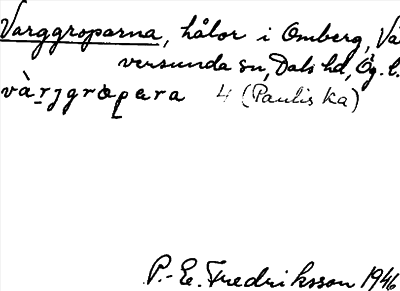 Varggroparna, hålor i Omberg, Vä
versunda sn, Dals hd, Ög. l.
và̀rjgropara 4 (Paulis ka)
P.-E. Fredriksson 1946